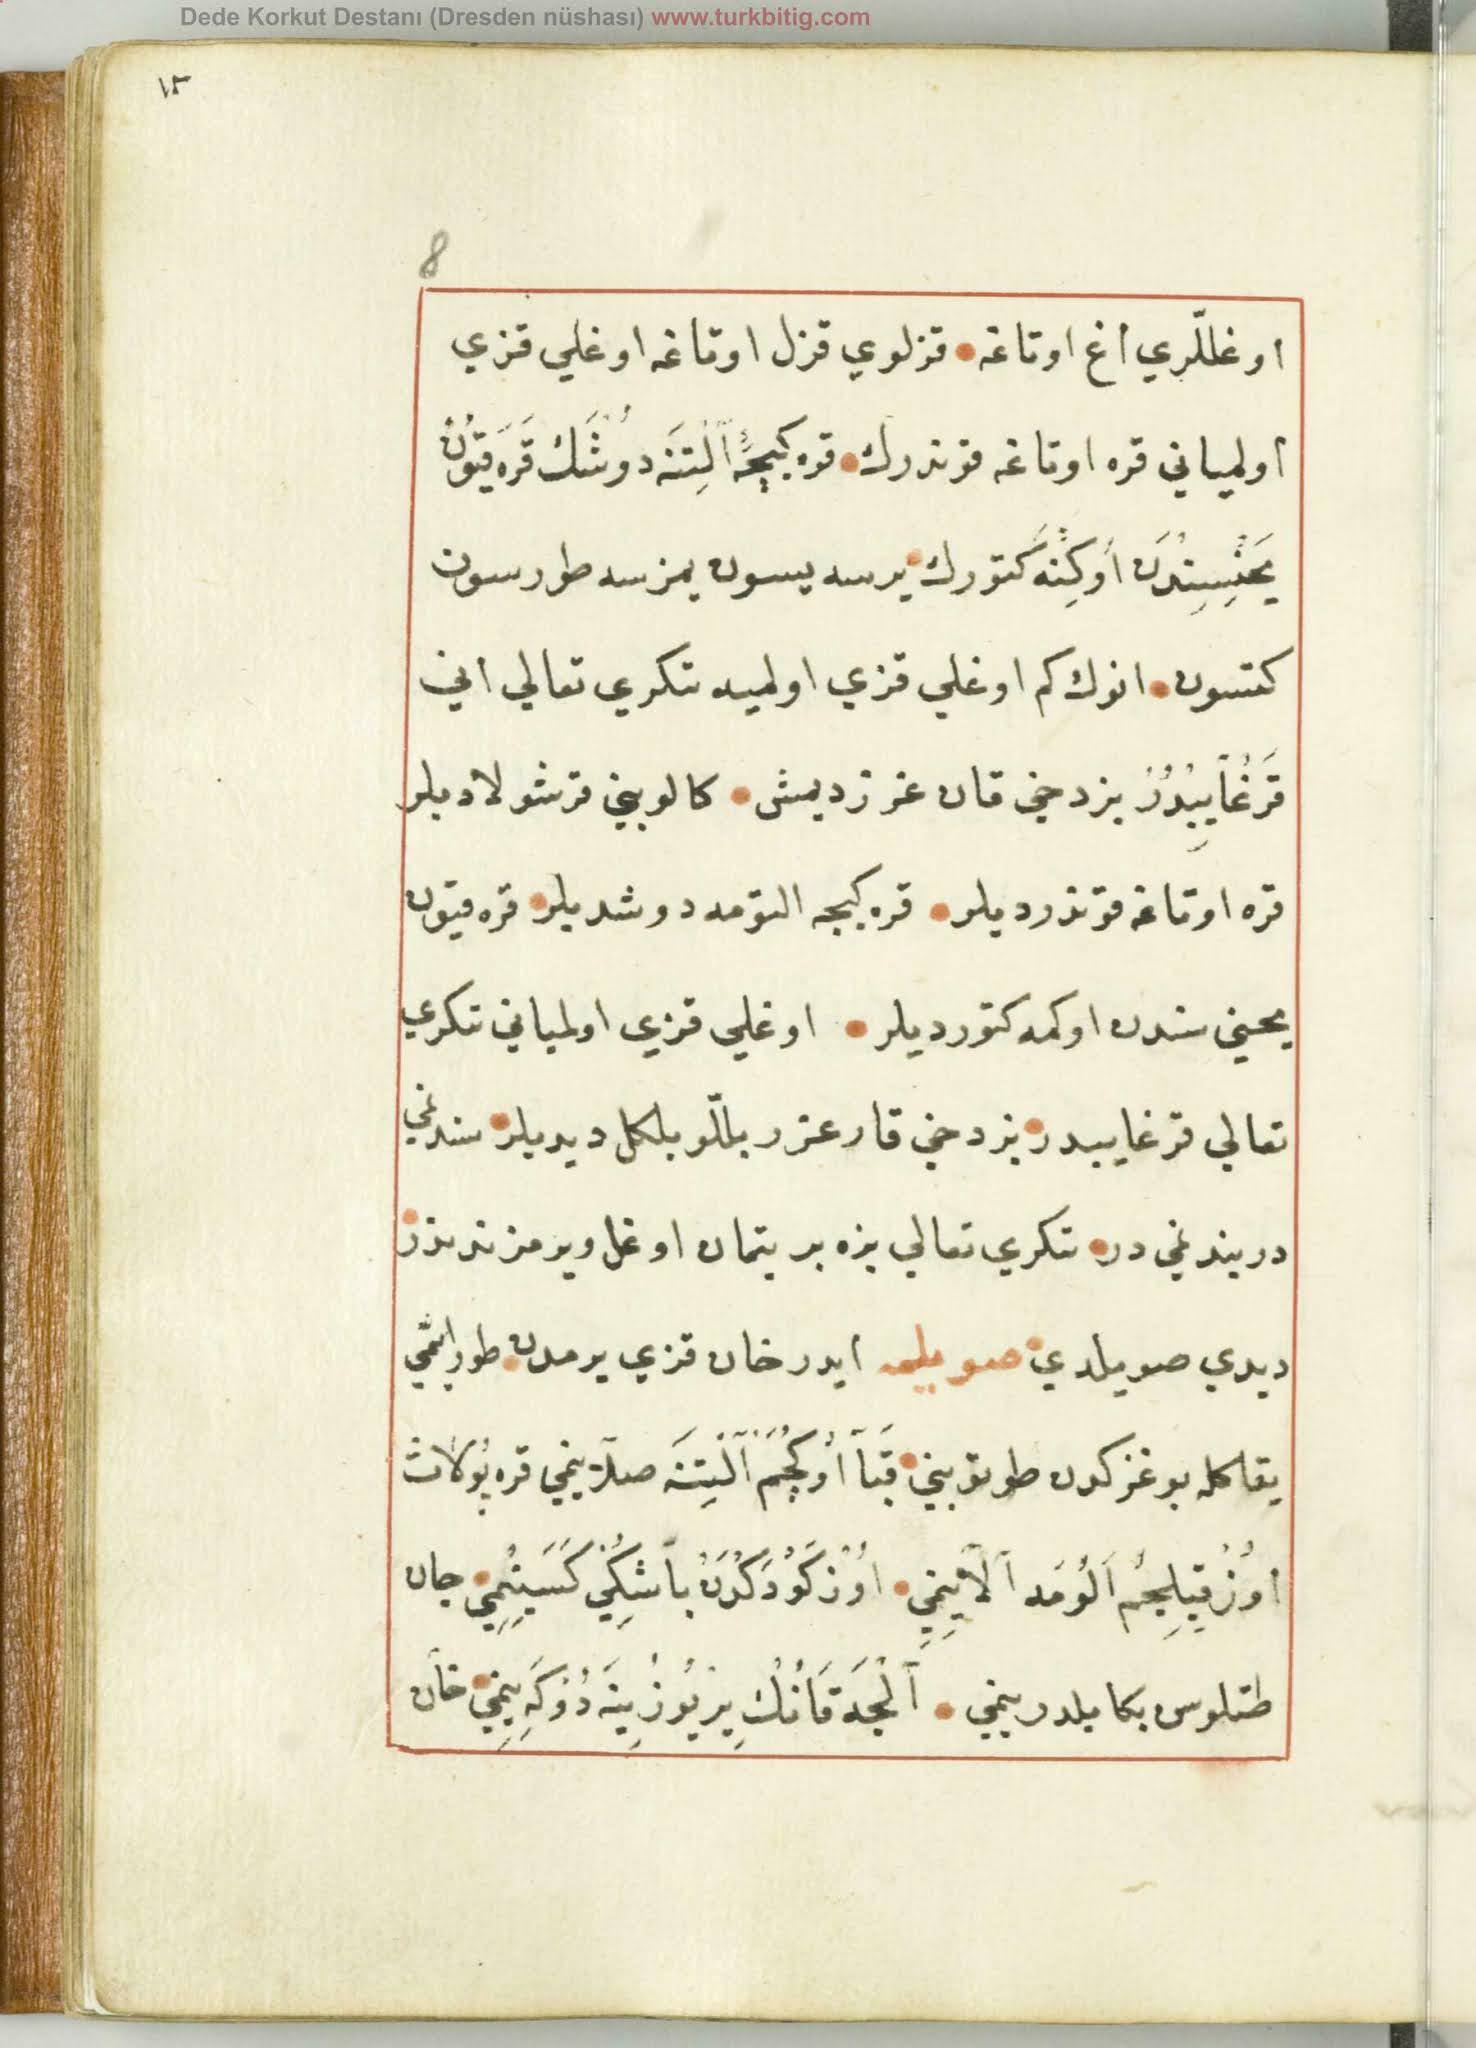 Dede Korkut Destanı (Dresden nüshası) www.turkbitig.com
١٣
8
اوغللّري اغ اوتاغه • قزلوي قزل اوتاغه اوغلي قزي
اولمياني قره اوتاغه قوندرك • قره كيچَه اَلْتِنَه دوشَك قَره قيُون
يَخْنِسِنْدَن اوكِنَه كتورك • يرسه يسون يمزسه طورسون
كتسون • انوك كم اوغلي قزي اولميه تكري تعالي اني
قَرغَاييُبْدُرْ بزدخي قارغرز ديمش • كالوبني قرشولاديلر
قره اوتاغه قوندرديلر • قره كيچه التومه دوشديلر • قره قيون
يحني سندن اوكمه كتورديلر • اوغلي قزي اولمياني تكري
تعالي قرغاييبدر • بزدخي قارغزر بللّو بلكل ديديلر • سندغي
در بندغي در • تكري تعالي بزه بر يتمان اوغل ويرمز ندندر •
ديدي صويلدي • صويلمه ايدر خان قزي يرمدن • طوراييمي
يقاكله بوغزكدن طوتوبيني • قَبَا اُوكچَمْ اَلْتِنَه صلاييمي قره پولات
اوُزْ قِيلِجُم اَلُومَه اَلاَيِيمِي • اوُزْ كَوْدَكْدَنْ بَاشِكِي كَسَيِيمِي • جان
طتلوسن بكا بلدريمي • اَلْجَه قَانُكْ يِرْيُوزِينَه دُوكَيِيمي • خان